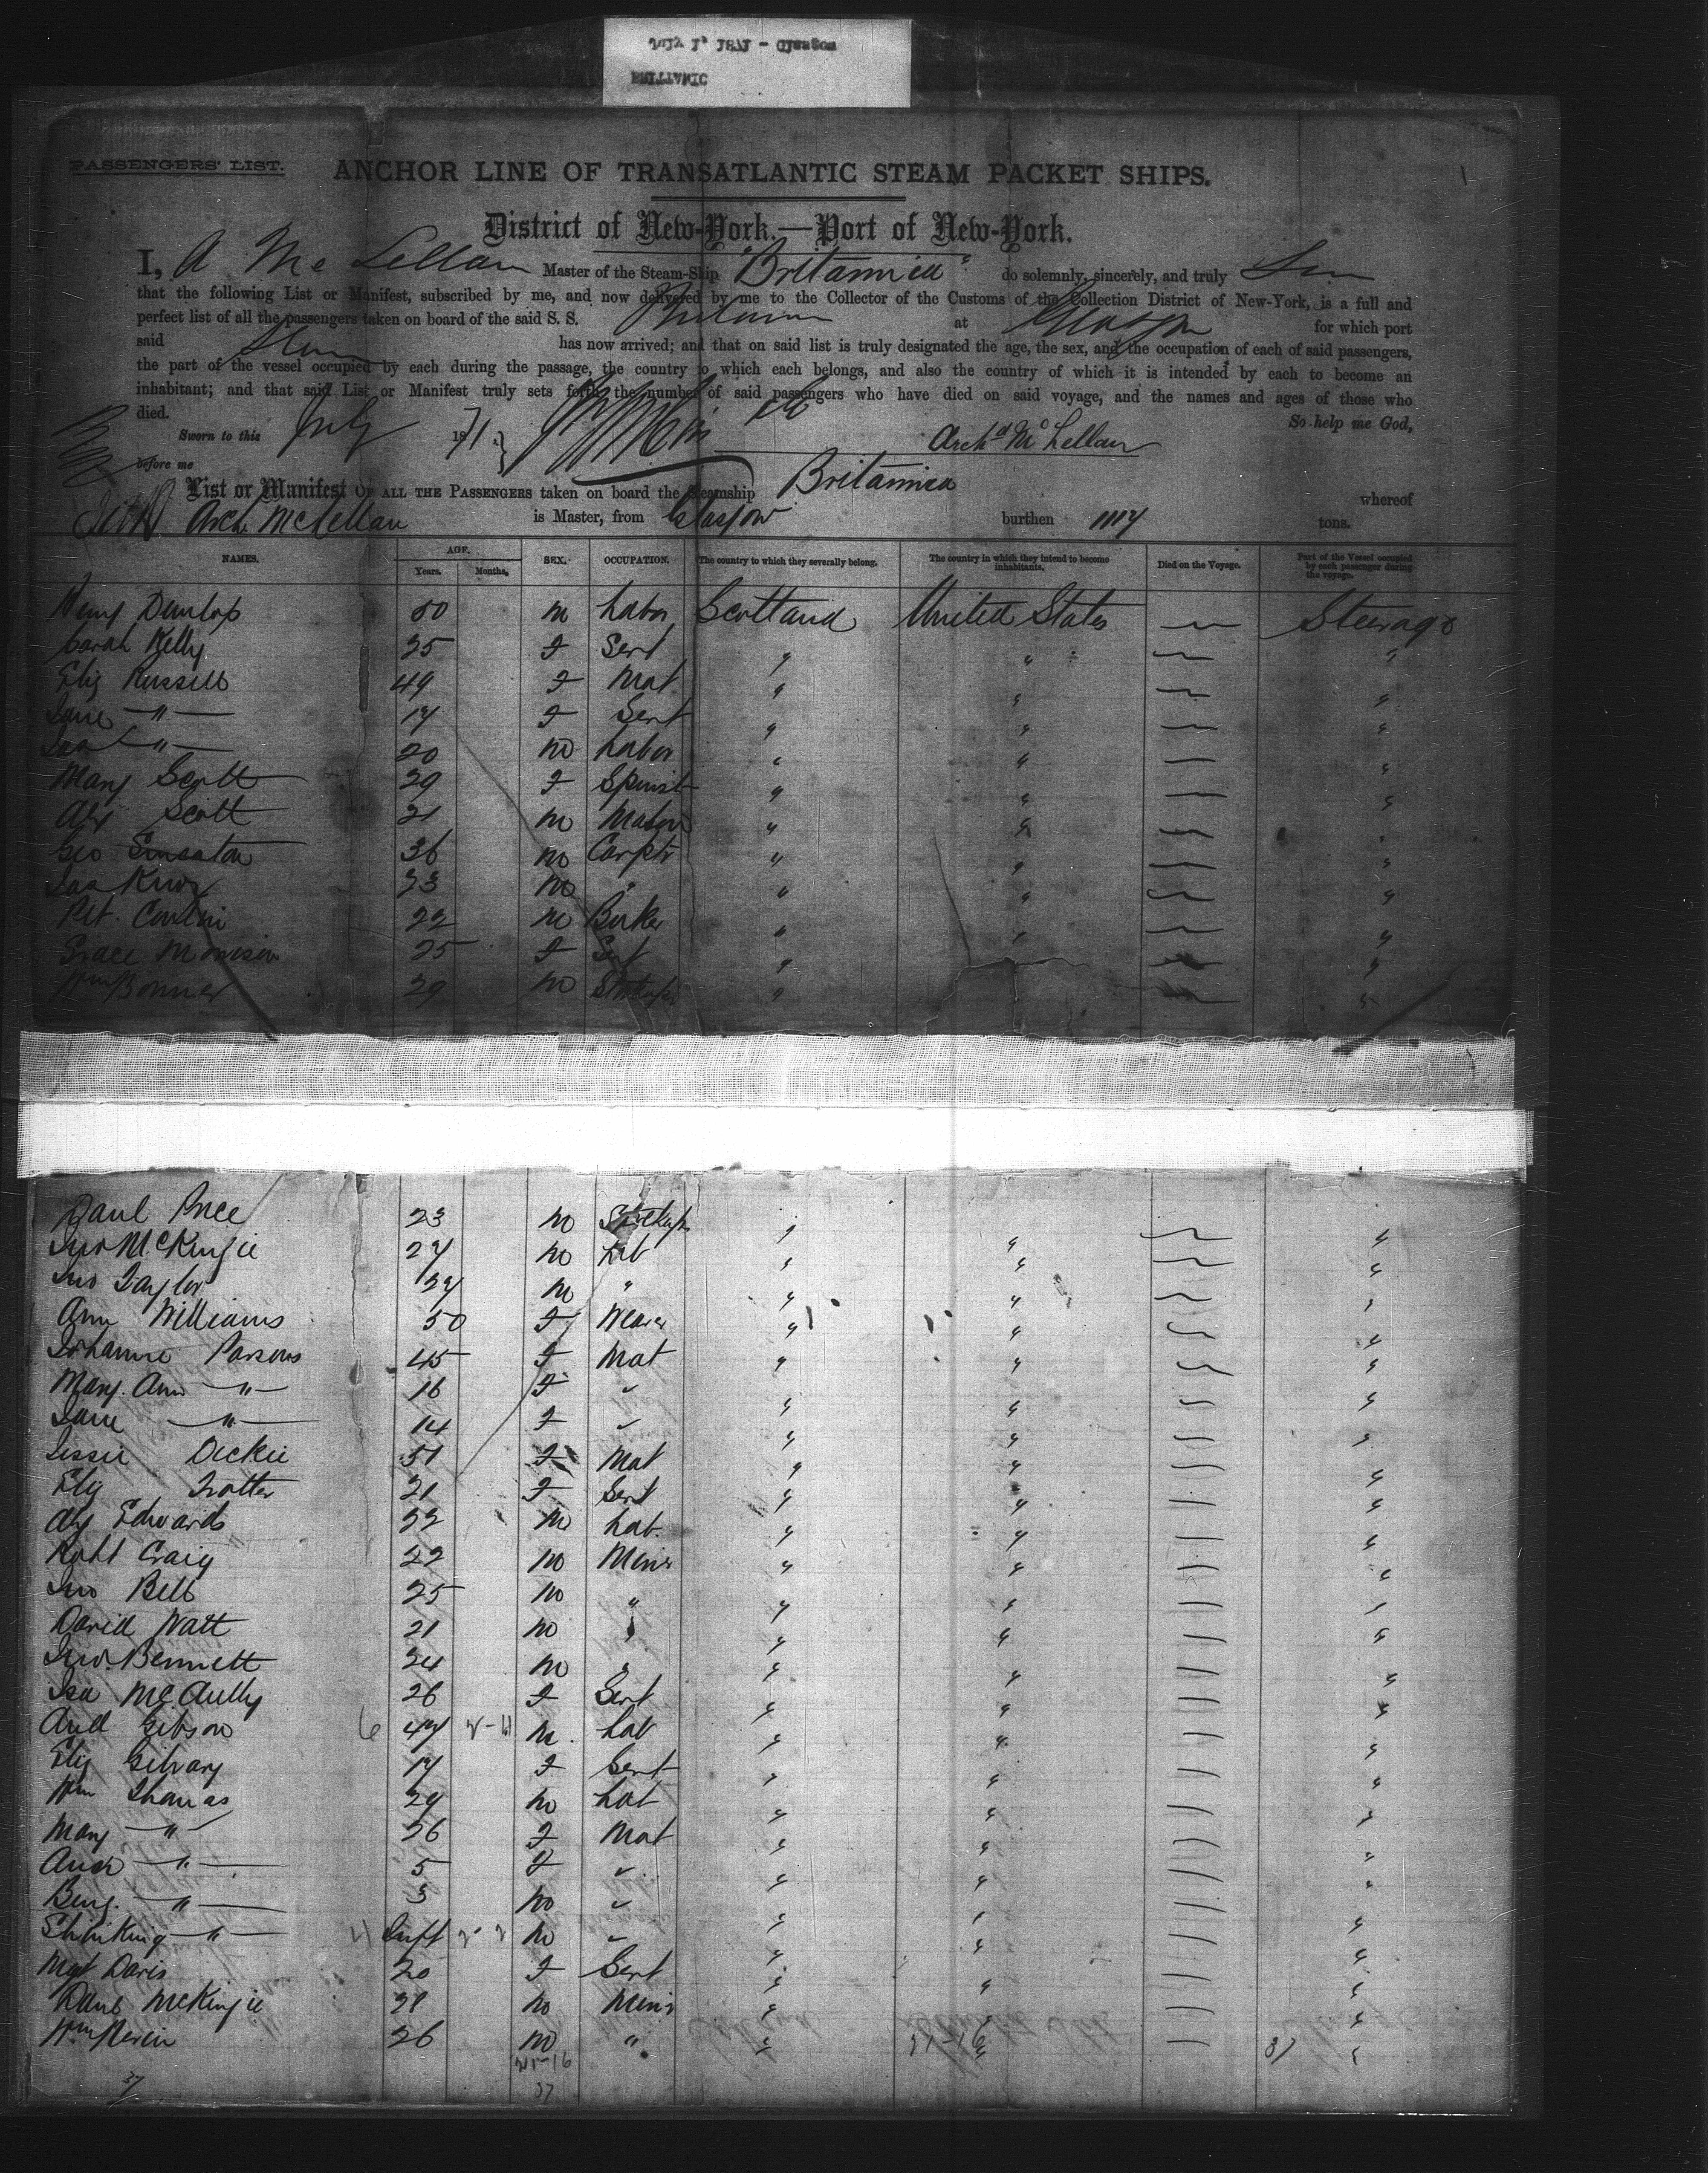 PASSENGERS' LIST.
ANCHOR LINE OF TRANSATLANTIC STEAM PACKET SHIPS.
District of New-York.—Port of New-York.
I, A McLellan Master of the Steam-Ship "Britannia" do solemnly, sincerely, and truly
that the following List or Manifest, subscribed by me, and now delivered by me to the Collector of the Customs of the Collection District of New-York, is a full and
perfect list of all the passengers taken on board of the said S. S. at Glasgow for which port
said has now arrived; and that on said list is truly designated the age, the sex, and the occupation of each of said passengers,
the part of the vessel occupied by each during the passage, the country to which each belongs, and also the country of which it is intended by each to become an
inhabitant; and that said List or Manifest truly sets forth the number of said passengers who have died on said voyage, and the names and ages of those who
died. So help me God,
Sworn to this July 1871 Archd McLellan
before me
List or Manifest OF ALL THE PASSENGERS taken on board the Steamship Britannia whereof
Arch McLellan is Master, from Glasgow burthen tons.
NAMES. AGE. Years. Months. SEX. OCCUPATION. The country to which they severally belong. The country in which they intend to become inhabitants. Died on the Voyage. Part of the Vessel occupied by each passenger during the voyage.
Henry Dunlop 50 m Labor Scotland United States — Steerage
Sarah Kelly 25 F Sert " " — "
Eliz Russell 49 F Mat " " — "
Jane — " — 17 F Sert " " — "
Jas — " — 20 m Labor " " — "
Mary Scott 29 F Spinst " " — "
Alex Scott 21 m Mason " " — "
Geo 36 m Carptr " " — "
Jas King 23 m " " " — "
Pet. 22 m " " — "
Grace Morrison 25 F Sert " " — "
Wm Bonner 29 m " " — "
Danl Price 23 m " " — "
Jno McKenzie 27 m Lab " " — "
Jno Taylor 24 m " " " — "
Ann Williams 50 F Weaver " " — "
Johanna Parsons 45 F Mat " " — "
Mary Ann — " — 16 F " " " — "
Jane — " — 14 F " " " — "
Jessie Dickie 51 F Mat " " — "
Eliz Trotter 21 F Sert " " — "
Alex Edwards 22 m Lab. " " — "
Robt Craig 22 m Miner " " — "
Jno Bell 25 m " " " — "
David Watt 21 m " " " — "
Jno. Bennett 24 m " " " — "
Isa McAully 26 F Sert " " — "
And Gibson 47 m Lab " " — "
Eliz Gilvary 17 F Sert " " — "
Wm Thomas 29 m Lab " " — "
Mary — " — 26 F Mat " " — "
— " — 5 F " " " — "
Benj. — " — 3 m " " " — "
— " — Inft m " " " — "
Mgt Davis 20 F Sert " " — "
Danl McKenzie 28 m Miner " " — "
Wm 26 m " " " — "
21-16 21-16 37
37 37